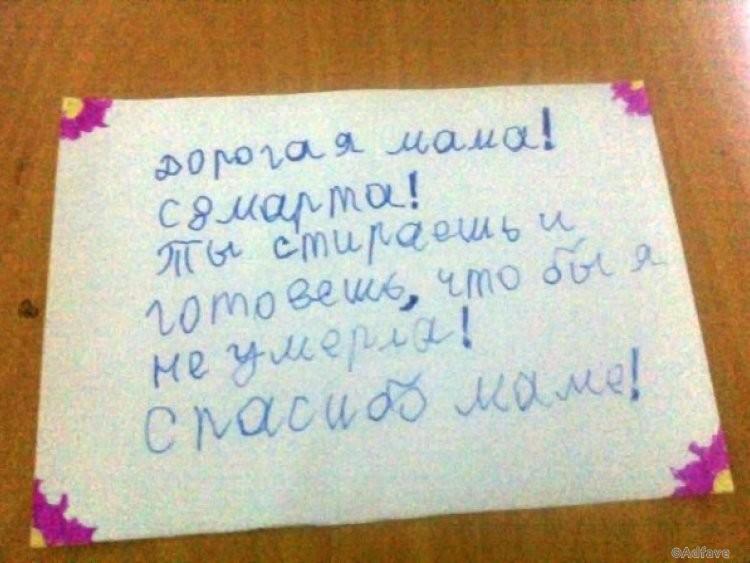 дорогая мама!
с 8 марта!
ты стираешь и
готовешь, что бы я
не умерла!
спасибо маме!
©Adfave